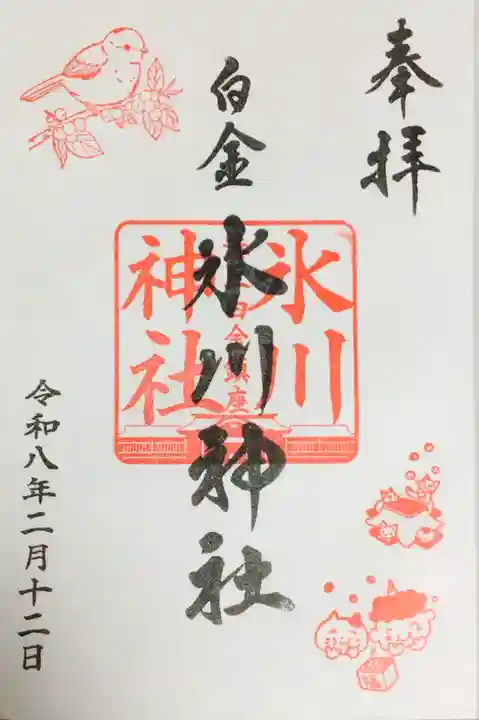 奉拝
白金
氷川神社
氷川
神社
白金鎮座
令和八年二月十二日